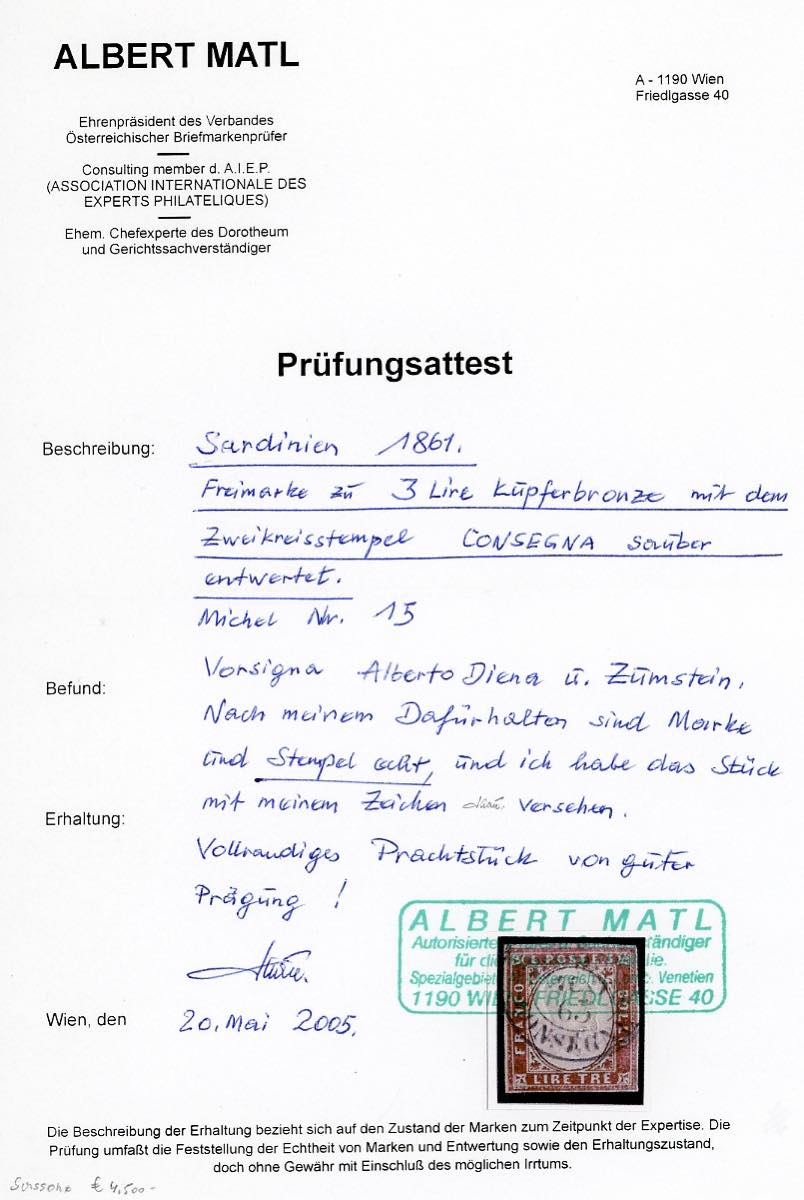 ALBERT MATL
A - 1190 Wien
Friedlgasse 40
Ehrenpräsident des Verbandes
Österreichischer Briefmarkenprüfer
Consulting member d. A.I.E.P.
(ASSOCIATION INTERNATIONALE DES
EXPERTS PHILATELIQUES)
Ehem. Chefexperte des Dorotheum
und Gerichtssachverständiger
Prüfungsattest
Beschreibung: Sardinien 1861.
Freimarke zu 3 Lire Kupferbronze mit dem
Zweikreisstempel CONSEGNA sauber
entwertet.
Michel Nr. 15
Befund: Vorsigna Alberto Diena u. Zumstein.
Nach meinem Dafürhalten sind Marke
und Stempel echt, und ich habe das Stück
mit meinem Zeichen versehen.
Erhaltung: Vollrandiges Prachtstück von guter
Prägung!
ALBERT MATL
Autorisierte ständiger
für die
Spezialgebiet Venetien
1190 WIEN FRIEDLGASSE 40
FRANCO
LIRE TRE
Wien, den 20. Mai 2005.
Die Beschreibung der Erhaltung bezieht sich auf den Zustand der Marken zum Zeitpunkt der Expertise. Die
Prüfung umfaßt die Feststellung der Echtheit von Marken und Entwertung sowie den Erhaltungszustand,
doch ohne Gewähr mit Einschluß des möglichen Irrtums.
Sassone € 4,500-